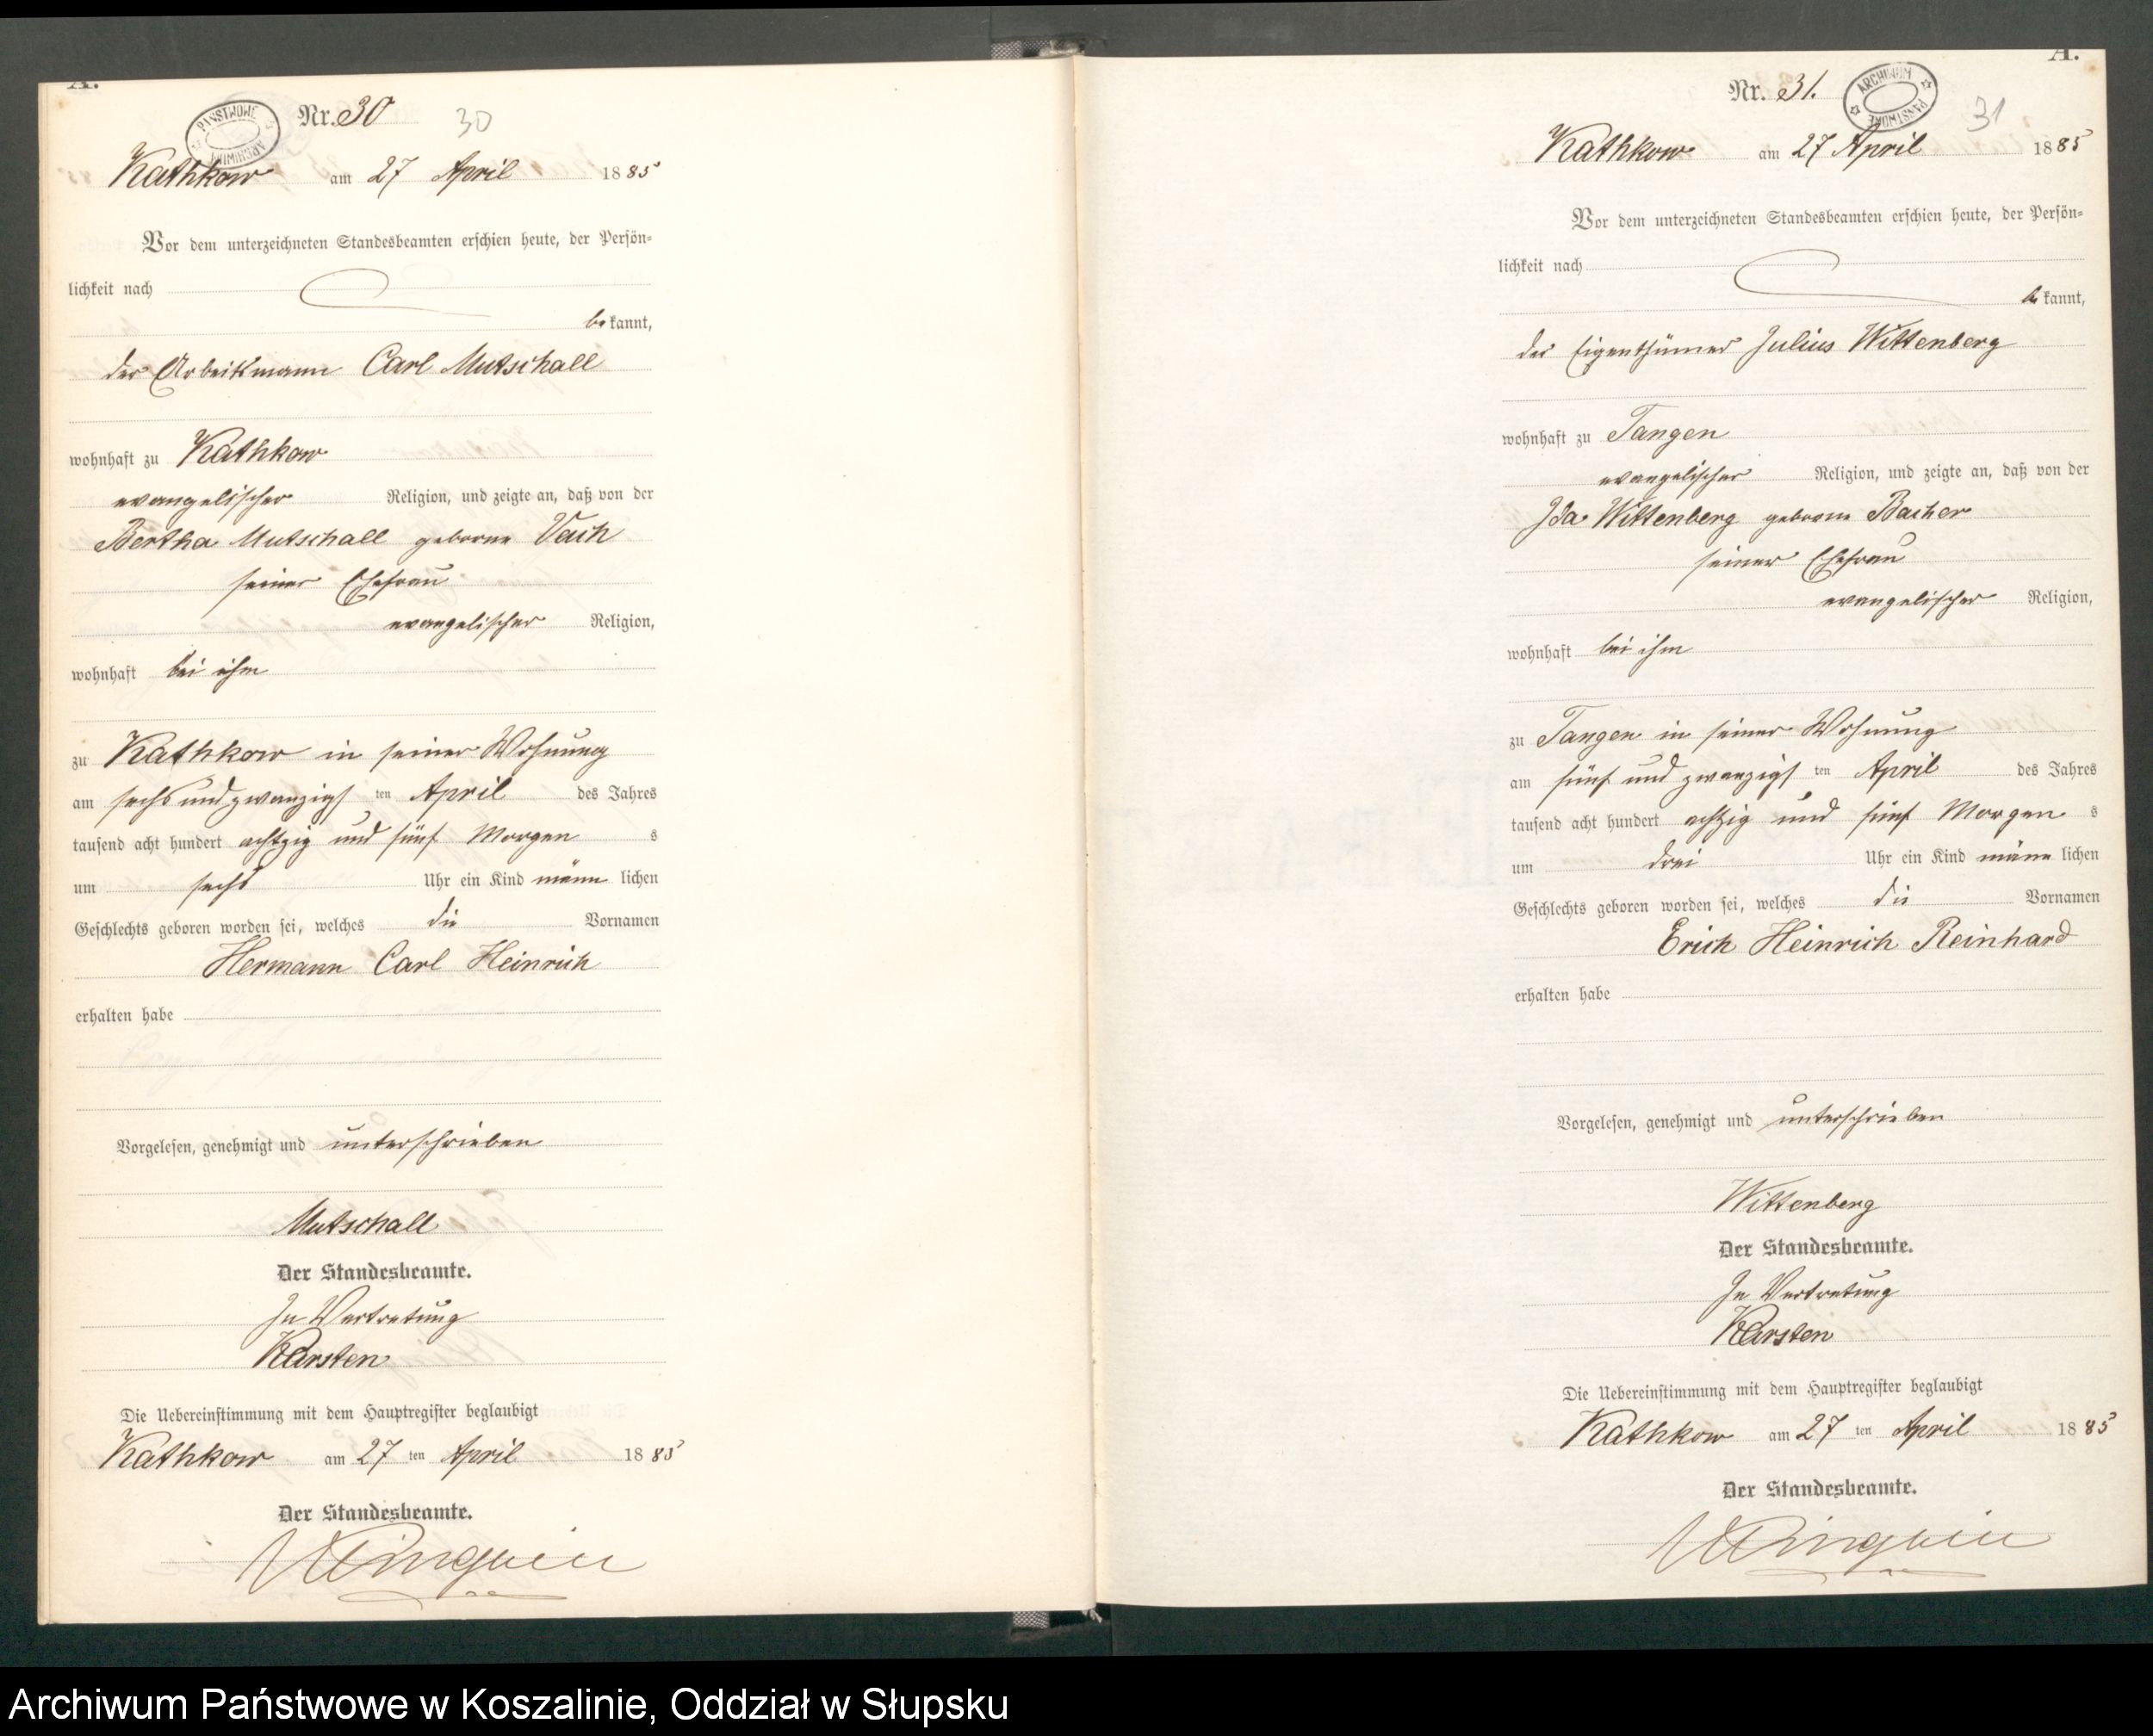 A.
Nr. 30 30
PAŃSTWOWE ARCHIWUM
Kathkow am 27 April 1885
Vor dem unterzeichneten Standesbeamten erschien heute, der Persön-
lichkeit nach
bekannt,
der Arbeitsmann Carl Mutschall
wohnhaft zu Kathkow
evangelischer Religion, und zeigte an, daß von der
Bertha Mutschall geborne Vach
seiner Ehefrau
evangelischer Religion,
wohnhaft bei ihm
zu Kathkow in seiner Wohnung
am sechs und zwanzigsten April des Jahres
tausend acht hundert achtzig und fünf Morgens
um sechs Uhr ein Kind männlichen
Geschlechts geboren worden sei, welches die Vornamen
Hermann Carl Heinrich
erhalten habe
Vorgelesen, genehmigt und unterschrieben
Mutschall
Der Standesbeamte.
In Vertretung
Karsten
Die Uebereinstimmung mit dem Hauptregister beglaubigt
Kathkow am 27ten April 1885
Der Standesbeamte.
A.
Nr. 31. 31
ARCHIWUM PAŃSTWOWE
Kathkow am 27 April 1885
Vor dem unterzeichneten Standesbeamten erschien heute, der Persön-
lichkeit nach
bekannt,
der Eigenthümer Julius Wittenberg
wohnhaft zu Tangen
evangelischer Religion, und zeigte an, daß von der
Ida Wittenberg geborne Bacher
seiner Ehefrau
evangelischer Religion,
wohnhaft bei ihm
zu Tangen in seiner Wohnung
am fünf und zwanzigsten April des Jahres
tausend acht hundert achtzig und fünf Morgens
um drei Uhr ein Kind männlichen
Geschlechts geboren worden sei, welches die Vornamen
Erich Heinrich Reinhard
erhalten habe
Vorgelesen, genehmigt und unterschrieben
Wittenberg
Der Standesbeamte.
In Vertretung
Karsten
Die Uebereinstimmung mit dem Hauptregister beglaubigt
Kathkow am 27ten April 1885
Der Standesbeamte.
Archiwum Państwowe w Koszalinie, Oddział w Słupsku